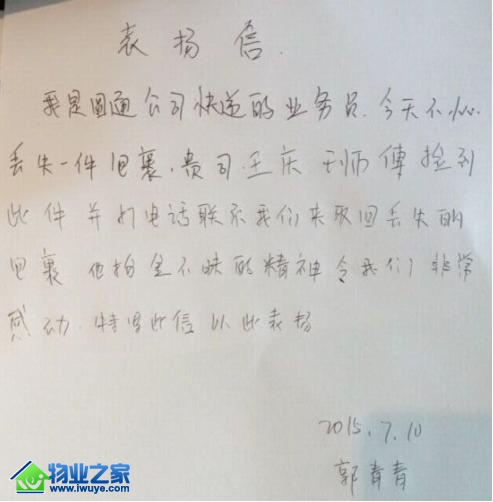 表扬信.
我是圆通公司快递的业务员.今天不小心
丢失一件包裹.贵司.王庆 师傅捡到
此件并打电话联系我们来取回丢失的
包裹 他拾金不昧的精神令我们非常
感动.特写此信以此表扬
2015.7.10
郭青青
物业之家
www.iwuye.com